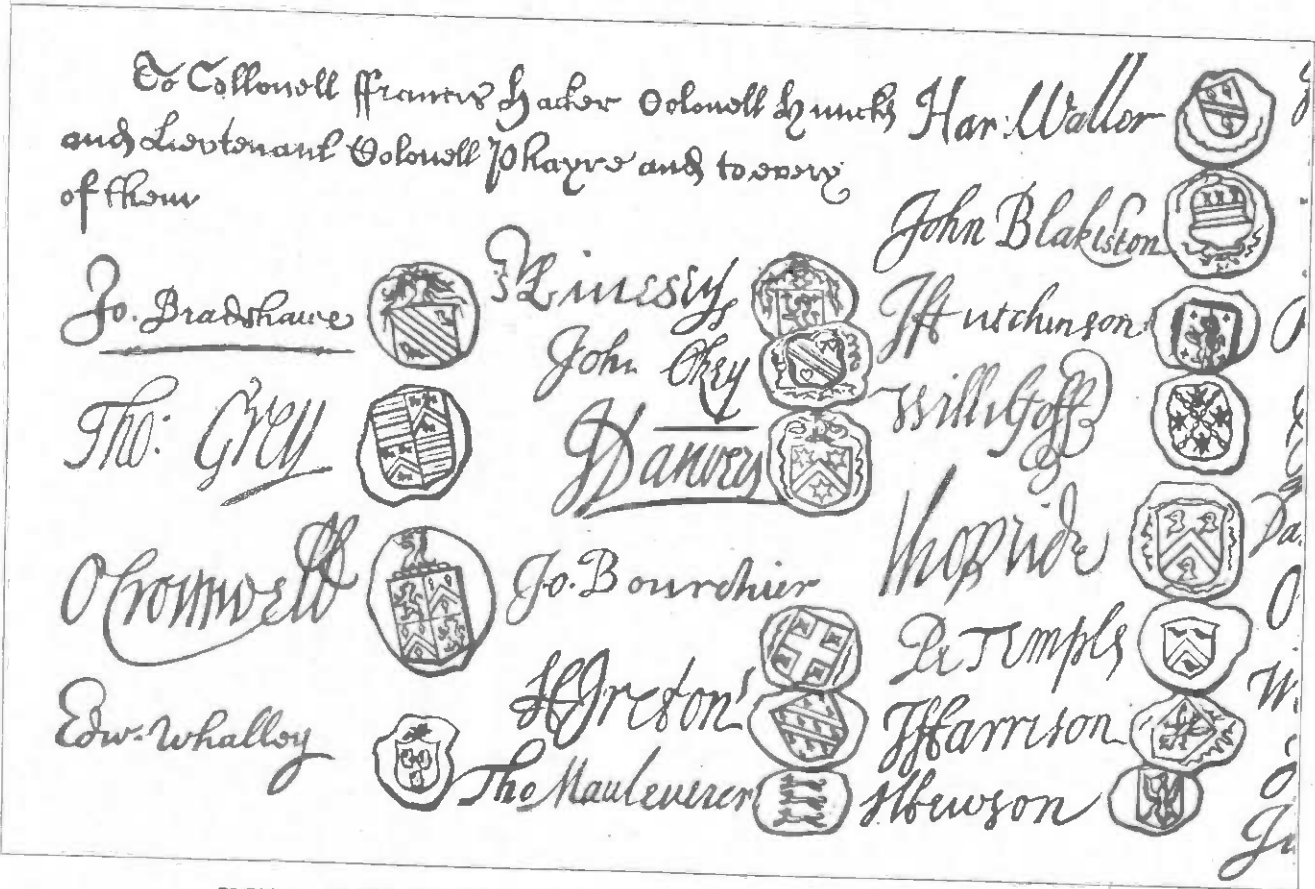 To Collonell ffrancis Hacker Colonell Huncks
and Lieutenant Colonell Phayre and to every
of them
Jo. Bradshawe
Tho: Grey
O Cromwell
Edw. Whalley
M Livesey
John Okey
J Danvers
Jo. Bourchier
H Ireton
Tho Mauleverer
Har: Waller
John Blakiston
J Hutchinson
Willi Goff
Tho Pride
Pe Temple
T Harrison
J Hewson